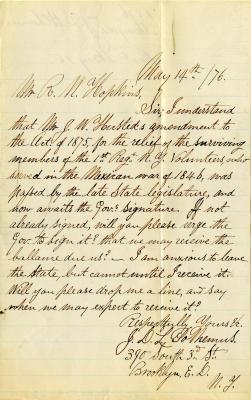 May 14th /76.
Mr. R. N. Hopkins,
Sir, I understand
that Mr. J. W. Husted's amendment to
the Act of 1875, for the relief of the surviving
members of the 1st Regt. N.Y. Volunteers, who
served in the Mexican war of 1846, was
passed by the late State legislature, and
now awaits the Gov's. signature. If not
already signed, will you please urge the
Gov. to sign it? that we may receive the
ballance due us? — I am anxious to leave
the State, but cannot until I receive it.
Will you please drop me a line, and say
when we may expect to receive it?
Respectfully Yours &c.
J. D. L. Polhemus.
390 South 3rd St.
Brooklyn E. D.
N. Y.